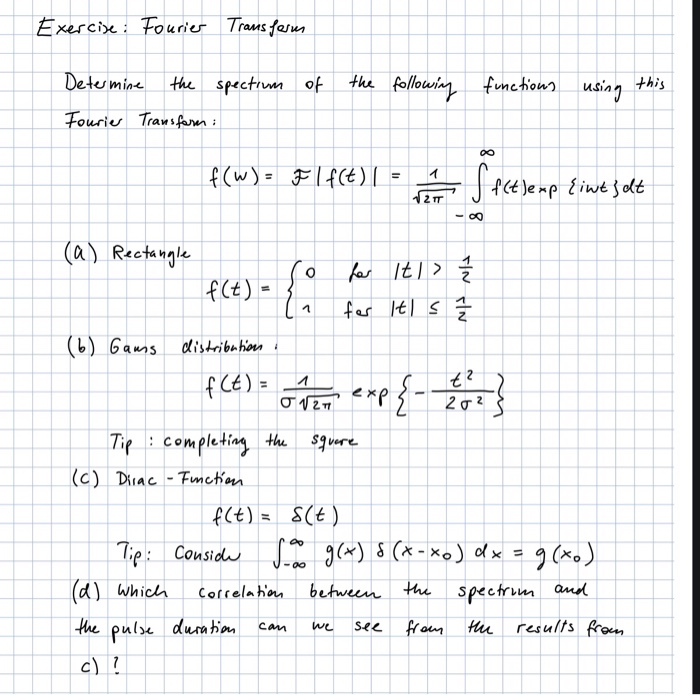 Exercise: Fourier Transform
Determine the spectrum of the following functions using this
Fourier Transform:
f(w) = F|f(t)| = 1/√2π ∫_{-∞}^{∞} f(t) exp {iwt} dt
(a) Rectangle
f(t) = { 0 for |t| > 1/2
1 for |t| ≤ 1/2
(b) Gauss distribution:
f(t) = 1/(σ√2π) exp {- t²/2σ²}
Tip: completing the square
(c) Dirac-Function
f(t) = δ(t)
Tip: Consider ∫_{-∞}^{∞} g(x) δ(x-x₀) dx = g(x₀)
(d) Which correlation between the spectrum and
the pulse duration can we see from the results from
c) ?